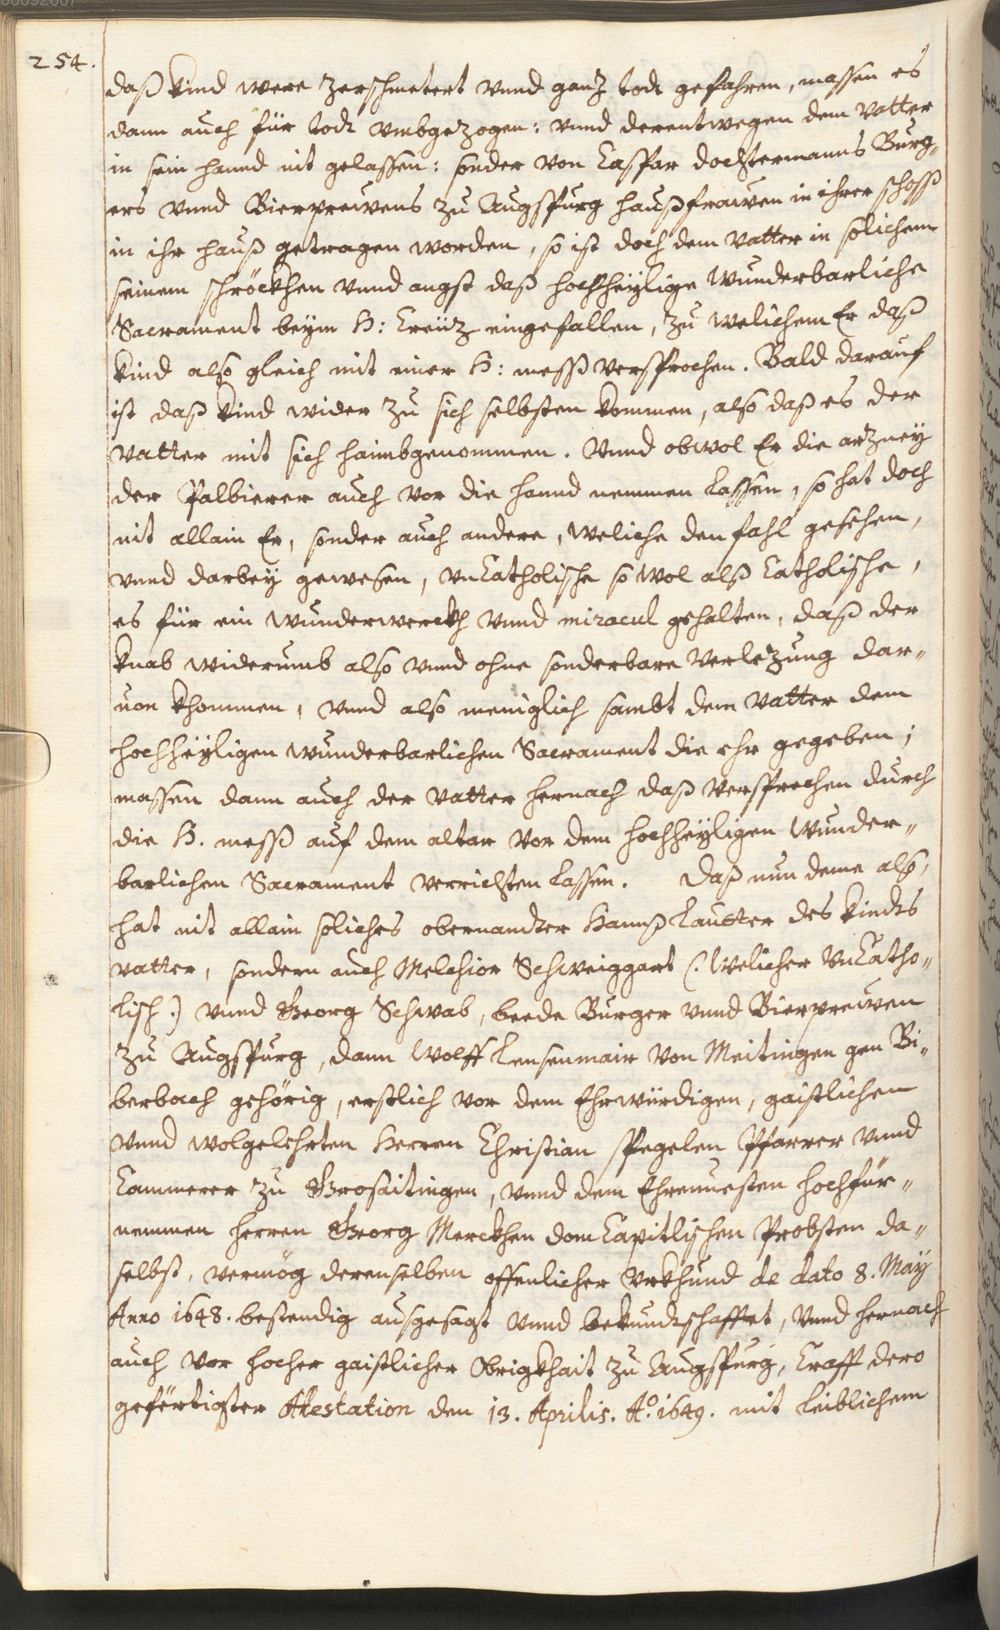 254.
daß kind were zerschmetert vnnd ganz todt gefahren, massen es
dann auch für todt vmbgezogen: vnnd derentwegen dem Vatter
in sein hannd nit gelassen: sonder von Caspar dochtermanns Burg„
ers vnnd Bierprewens zu Augspurg haußfrawen in ihrer schoß
in ihr hauß getragen worden, so ist doch dem Vatter in solichem
seinem schröckhen vnnd angst daß hochheylige Wunderbarliche
Sacrament beym H: Creüz eingefallen, zu welichem Er daß
kind also gleich mit einer H: mess versprochen. Bald darauf
ist daß kind wider zu sich selbsten kommen, also daß es der
Vatter mit sich haimbgenommen. Vnnd obwol Er die arzney
der Palbierer auch vor die hannd nemmen lassen, so hat doch
nit allain Er, sonder auch andere, weliche den fahl gesehen,
vnnd darbey gewesen, vnCatholische so wol alß Catholische,
es für ein wunderwerckh vnnd miracul gehalten, daß der
knab widerumb also vnnd ohne sonderbare Verlezung dar„
uon khommen, vnnd also meniglich sambt dem Vatter dem
hochheyligen wunderbarlichen Sacrament die ehr gegeben;
massen dann auch der Vatter hernach daß Versprechen durch
die H. mess auf dem altar vor dem hochheyligen Wunder„
barlichen Sacrament verrichten lassen. Daß nun deme also,
hat nit allain soliches obernandter Hannß Lautter des kindts
vatter, sondern auch Melchior Schweiggart (: welicher VnCatho„
lisch :) vnnd Georg Schwab, beede Burger vnnd Bierprewen
zu Augspurg, dann Wolff Lensenmair von Meitingen gen Bi„
berbach gehörig, erstlich vor dem Ehrwürdigen, gaistlichen
vnnd wolgelehrten Herren Christian Spegelen Pfarrer vnnd
Cammerer zu Grosaitingen, vnnd dem Ehrnuesten hochfür„
nemmen herren Georg Merckhen dom Capitlischen Probsten da„
selbst, vermög derenselben offenlicher Vrkhund de dato 8. May
Anno 1648. bestendig ausgesagt vnnd bekundtschafftet, vnnd hernach
auch vor hocher gaistlicher Obrigkhait zu Augspurg, Crafft dero
gefertigter Attestation den 13. Aprilis. Aº. 1649. mit leiblichem